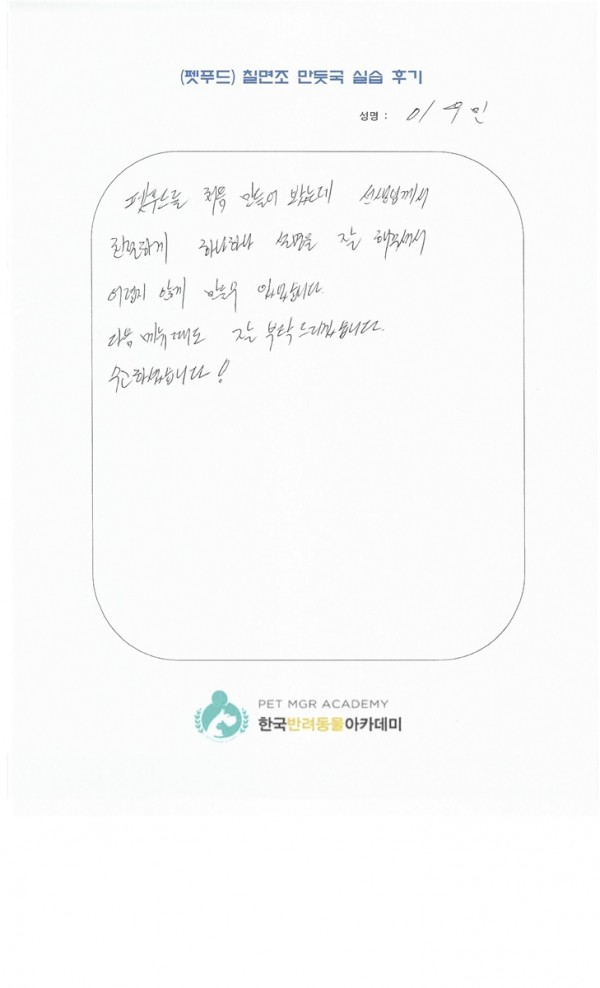 (펫푸드) 칠면조 만둣국 실습 후기
성명 : 이우민
펫푸드를 처음 만들어 봤는데 선생님께서
하나하나 설명을 잘 해주셔서
어렵지 않게 만들수 있었습니다.
다음 메뉴때도 잘 부탁드리겠습니다.
수고하셨습니다!
PET MGR ACADEMY
한국반려동물아카데미